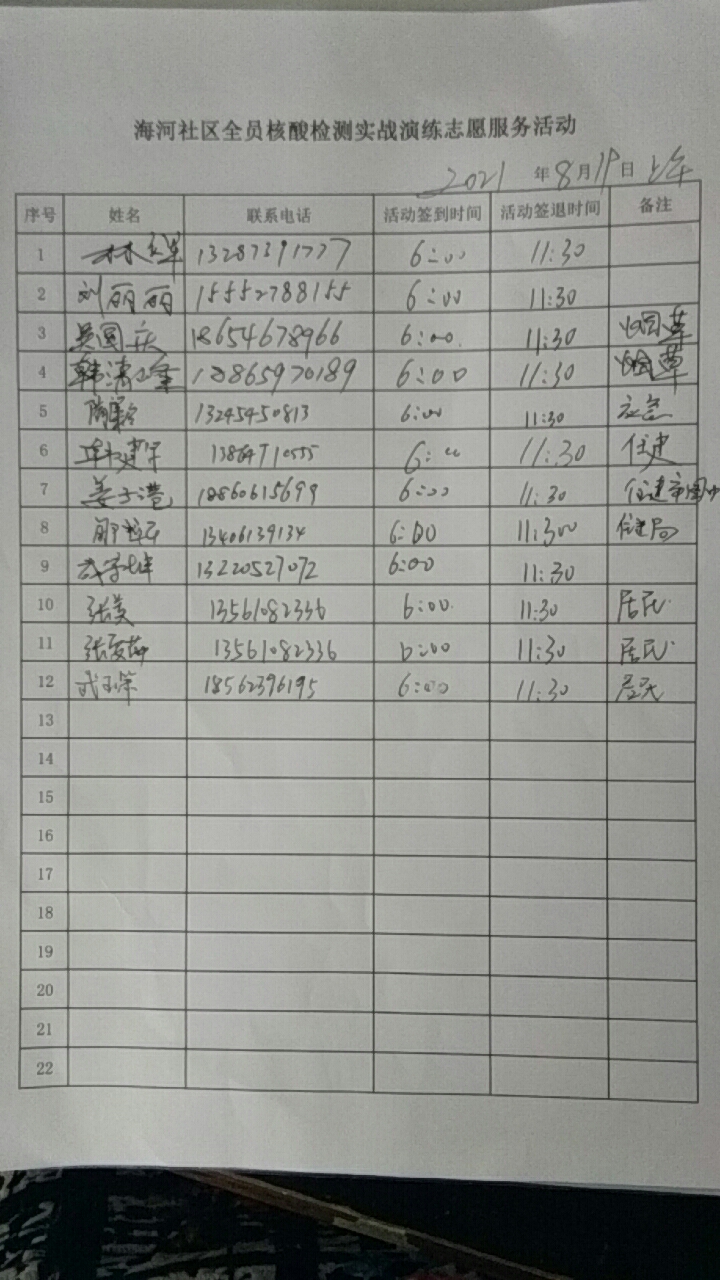 海河社区全员核酸检测实战演练志愿服务活动
2021 年 8 月 19 日 上午
序号 姓名 联系电话 活动签到时间 活动签退时间 备注
1 13287391777 6:00 11:30
2 刘丽丽 15552788155 6:00 11:30
3 吴国庆 18654678966 6:00 11:30 烟草
4 韩清 18865970189 6:00 11:30 烟草
5 13245450813 6:00 11:30 应急
6 6:00 11:30 住建
7 姜子港 18860615699 6:00 11:30 住建
8 13406139134 6:00 11:300 住建局
9 13220527072 6:00 11:30
10 张美 13561082336 6:00 11:30 居民
11 张爱萍 13561082336 6:00 11:30 居民
12 18562396195 6:00 11:30 居民
13
14
15
16
17
18
19
20
21
22